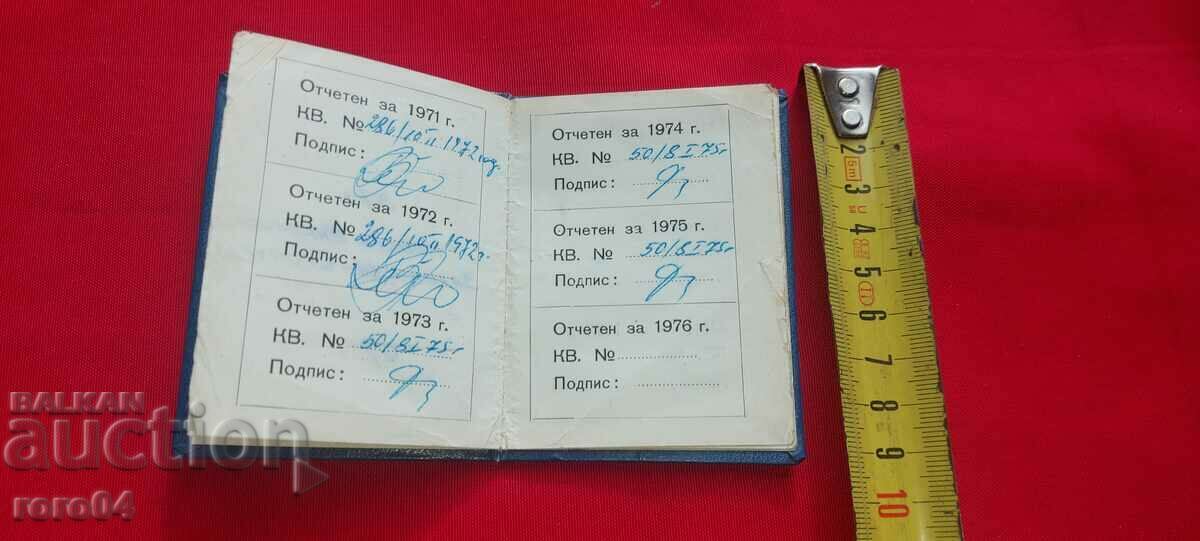 Отчетен за 1971 г.
КВ. № 286/10 II 1972 год
Подпис:
Отчетен за 1972 г.
КВ. № 286/10 II 1972 г.
Подпис:
Отчетен за 1973 г.
КВ. № 50/8 I 75 г
Подпис:
Отчетен за 1974 г.
КВ. № 50/8 I 75 г
Подпис:
Отчетен за 1975 г.
КВ. № 50/8 I 75 г
Подпис:
Отчетен за 1976 г.
КВ. №
Подпис:
2
5m
3
4
5
II
6
7
8
9
10
BALKAN
auction
roro04